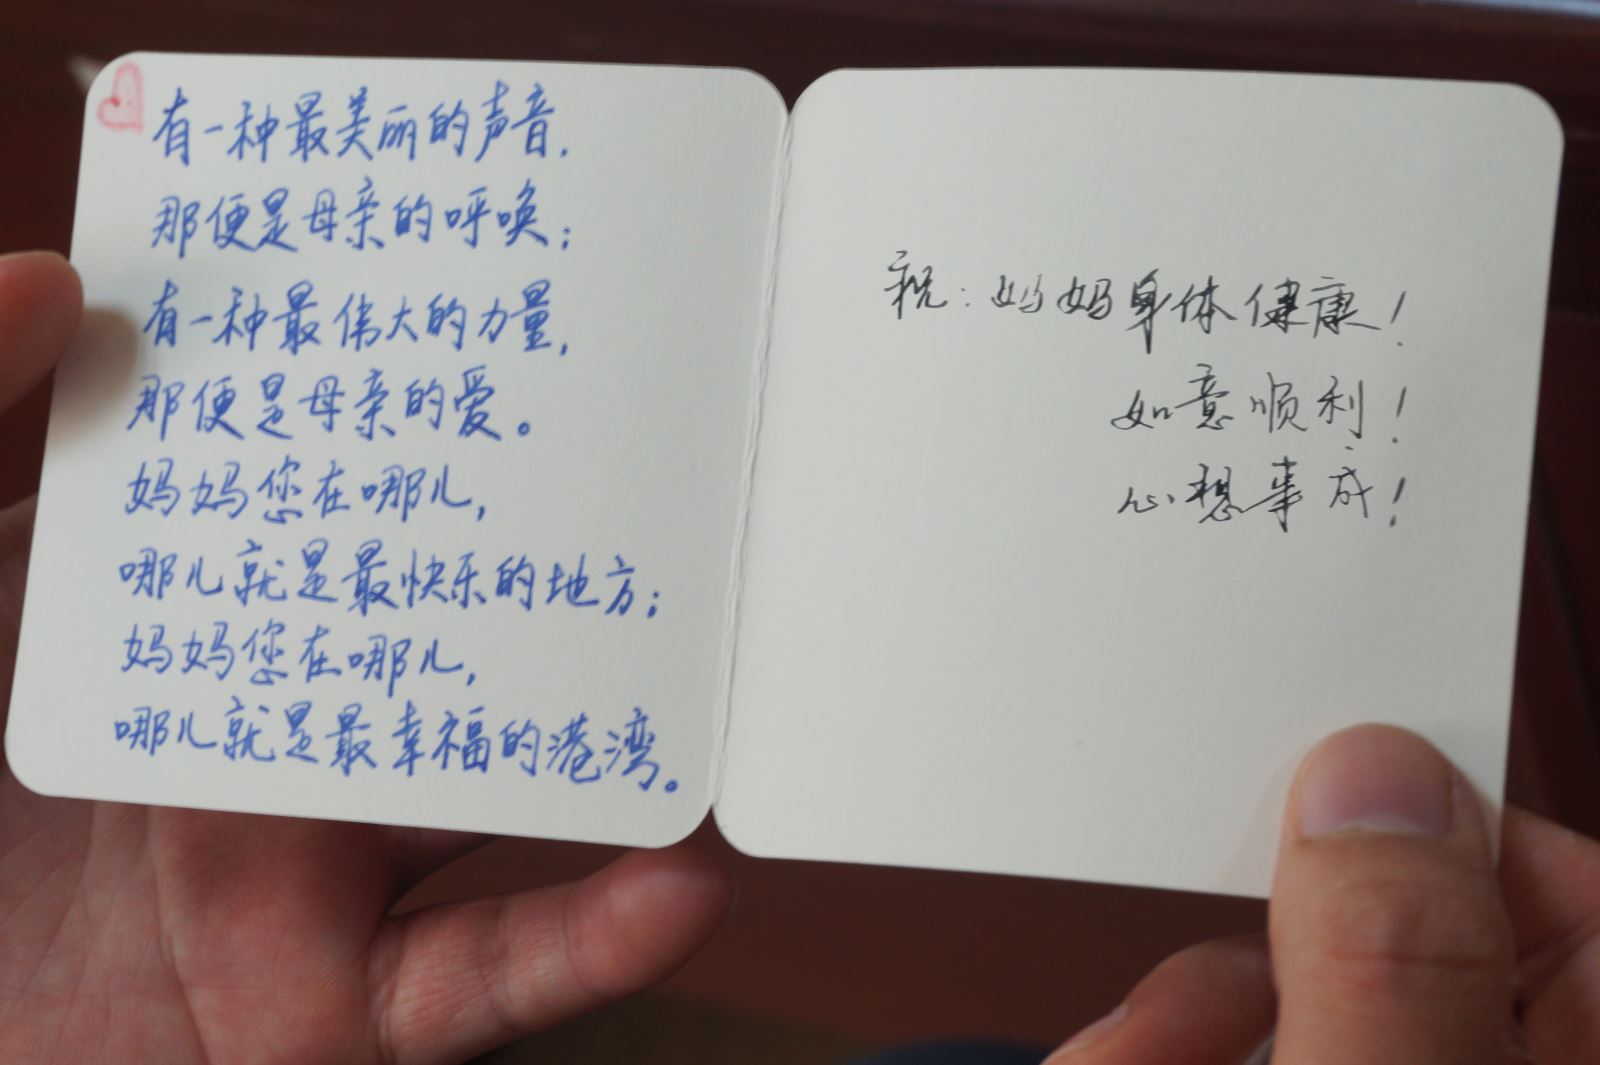 有一种最美丽的声音,
那便是母亲的呼唤;
有一种最伟大的力量,
那便是母亲的爱。
妈妈您在哪儿,
哪儿就是最快乐的地方;
妈妈您在哪儿,
哪儿就是最幸福的港湾。
祝:妈妈身体健康!
如意顺利!
心想事成!